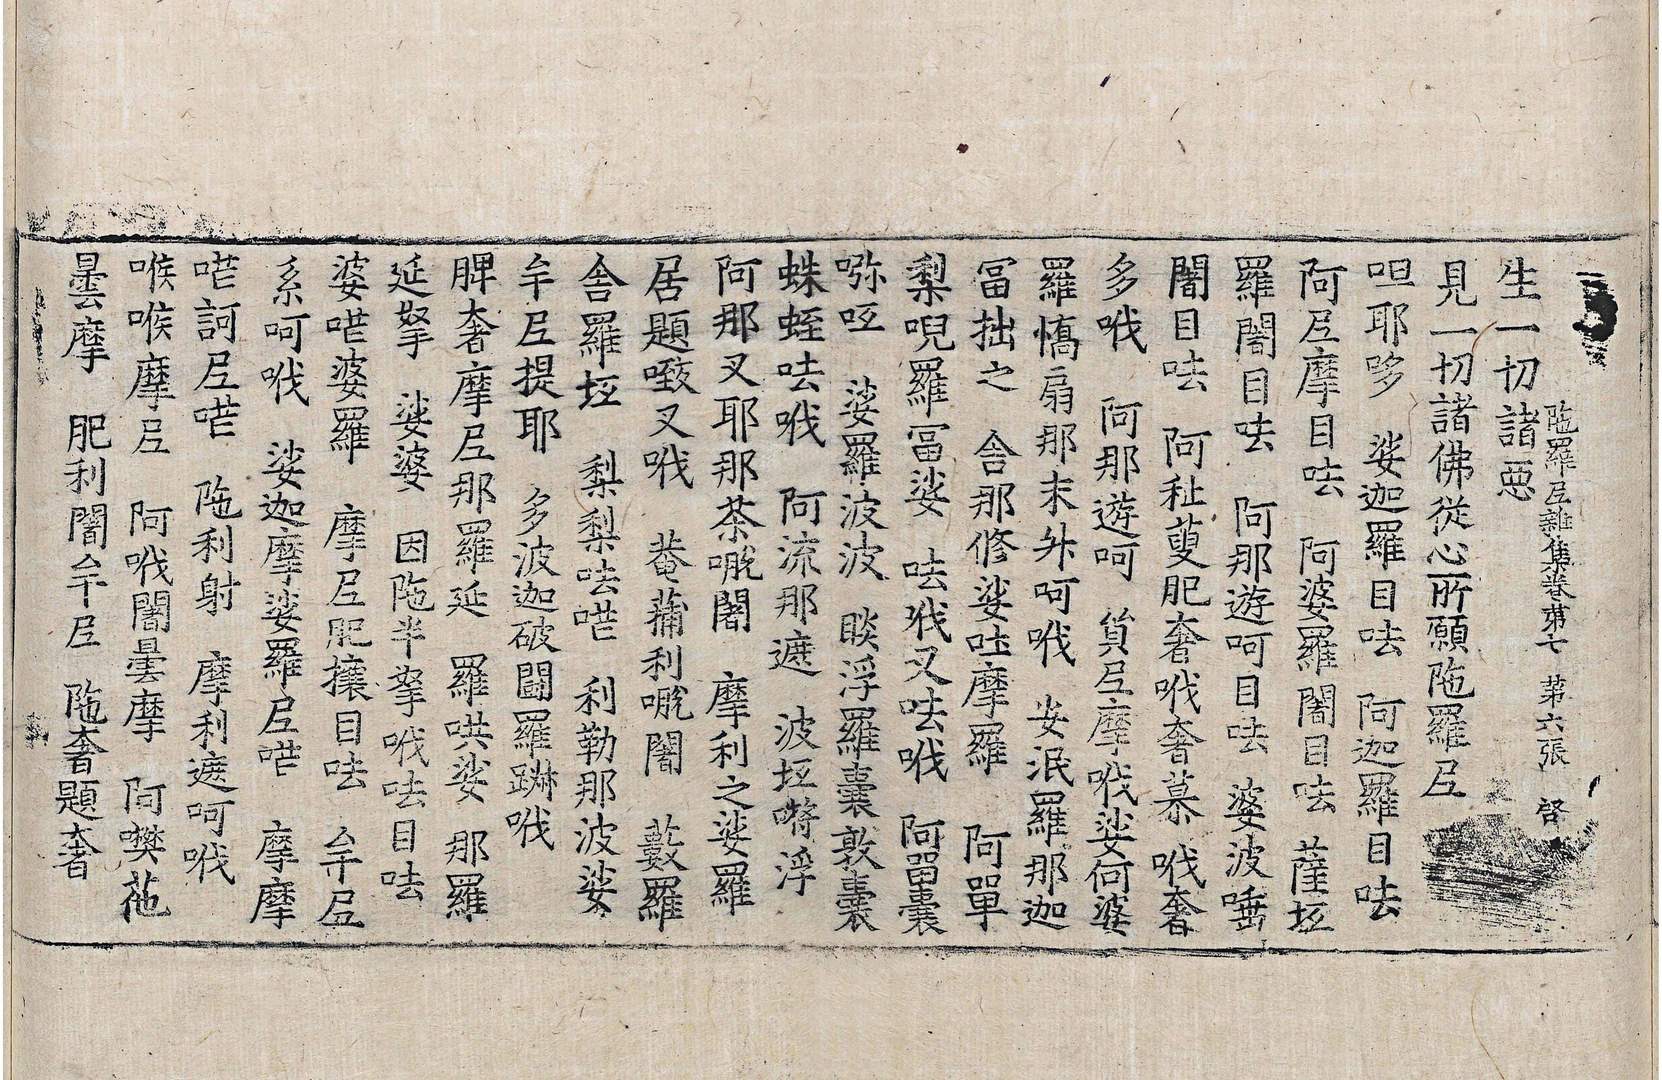 陁羅尼雜集卷苐七 苐六張 啓
生一切諸惡
見一切諸佛從心所願陁羅尼
呾耶哆 娑迦羅目呿 阿迦羅目呿
阿尼摩目呿 阿婆羅闍目呿 薩坻
羅闍目呿 阿那遊呵目呿 婆波唾
闍目呿 阿祉蔓肥奢哦奢慕 哦奢
多哦 阿那遊呵 貨尼摩哦娑何婆
羅憍扇那末舛呵哦 安泯羅那迦
冨拙之 舍那修娑吐摩羅 阿單
梨唲羅冨娑 呿哦叉呿哦 阿留囊
㘨呧 娑羅波波 睒浮羅囊敦囊
蛛蛭呿哦 阿流那遮 波坻㗚浮
阿那叉耶那荼㗙闍 摩利之娑羅
居題㗧叉哦 菴蒱利㗙闍 藪羅
舍羅坻 梨梨呿喏 利勒那波娑
牟尼提耶 多波迦破闘羅踟哦
脾奢摩尼那羅延 羅哄娑 那羅
延拏 娑婆 因陁半拏哦呿目呿
婆喏婆羅 摩尼肥攘目呿 牟尼
系呵哦 娑迦摩娑羅尼喏 摩摩
喏訶尼喏 陁利射 摩利遮呵哦
喉喉摩尼 阿哦闍曇摩 阿樊菢
曇摩 肥利闍牟尼 陁奢題奢